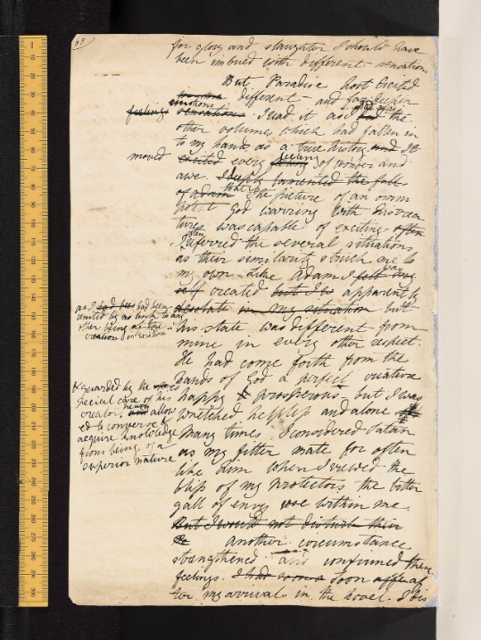 65)
for glory and slaughter I should have
been imbued with different sensations
But Paradise lost excited
different and far deeper
emotions
feelings sensations. I read it as I had the
other volumes which had fallen in
to my hands as a true history and It
moved excited every feeling of wonder and
awe. I deeply lamented the fall
of adam that the picture of an omni
potent God warring with his crea
tures was capable of exciting often
I often referred the several situations
as their similarity struck me to
my own. Like Adam I felt my
self created but I was apparently
desolate in my situation but
as I had been had been
united by no link to any
other being
in existence
his state was different from
mine in every other respect.
He had come forth from the
hands of God a perfect creature
happy & prosperous but I was
& guarded by the
special care of his
creator. allow
ed to converse &
acquire knowledge
from beings of a
superior nature
wretched helpless and alone
Many times I considered Satan
as my fitter mate for often
like him when I viewed the
bliss of my Protectors the bitter
gall of envy rose within me.
But I would not disturb their
another circumstance
strengthened and confirmed these
feelings. I had soon a Soon after af
ter my arrival in the hovel. I dis